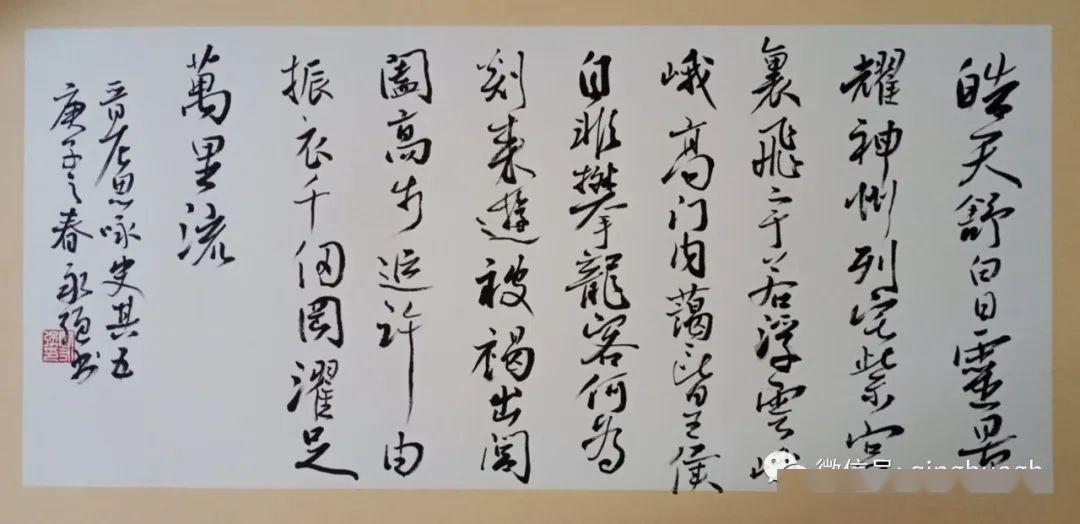 皓天舒白日靈景
耀神州列宅紫宫
裏飛宇若浮雲峨
峨高门内藹藹皆王侯
自非攀龍客何為
欻来遊被褐出閶
闔高步追许由
振衣千仞岡濯足
萬里流
晋左思咏史其五
庚子之春永强书
微信号: qinghuagh